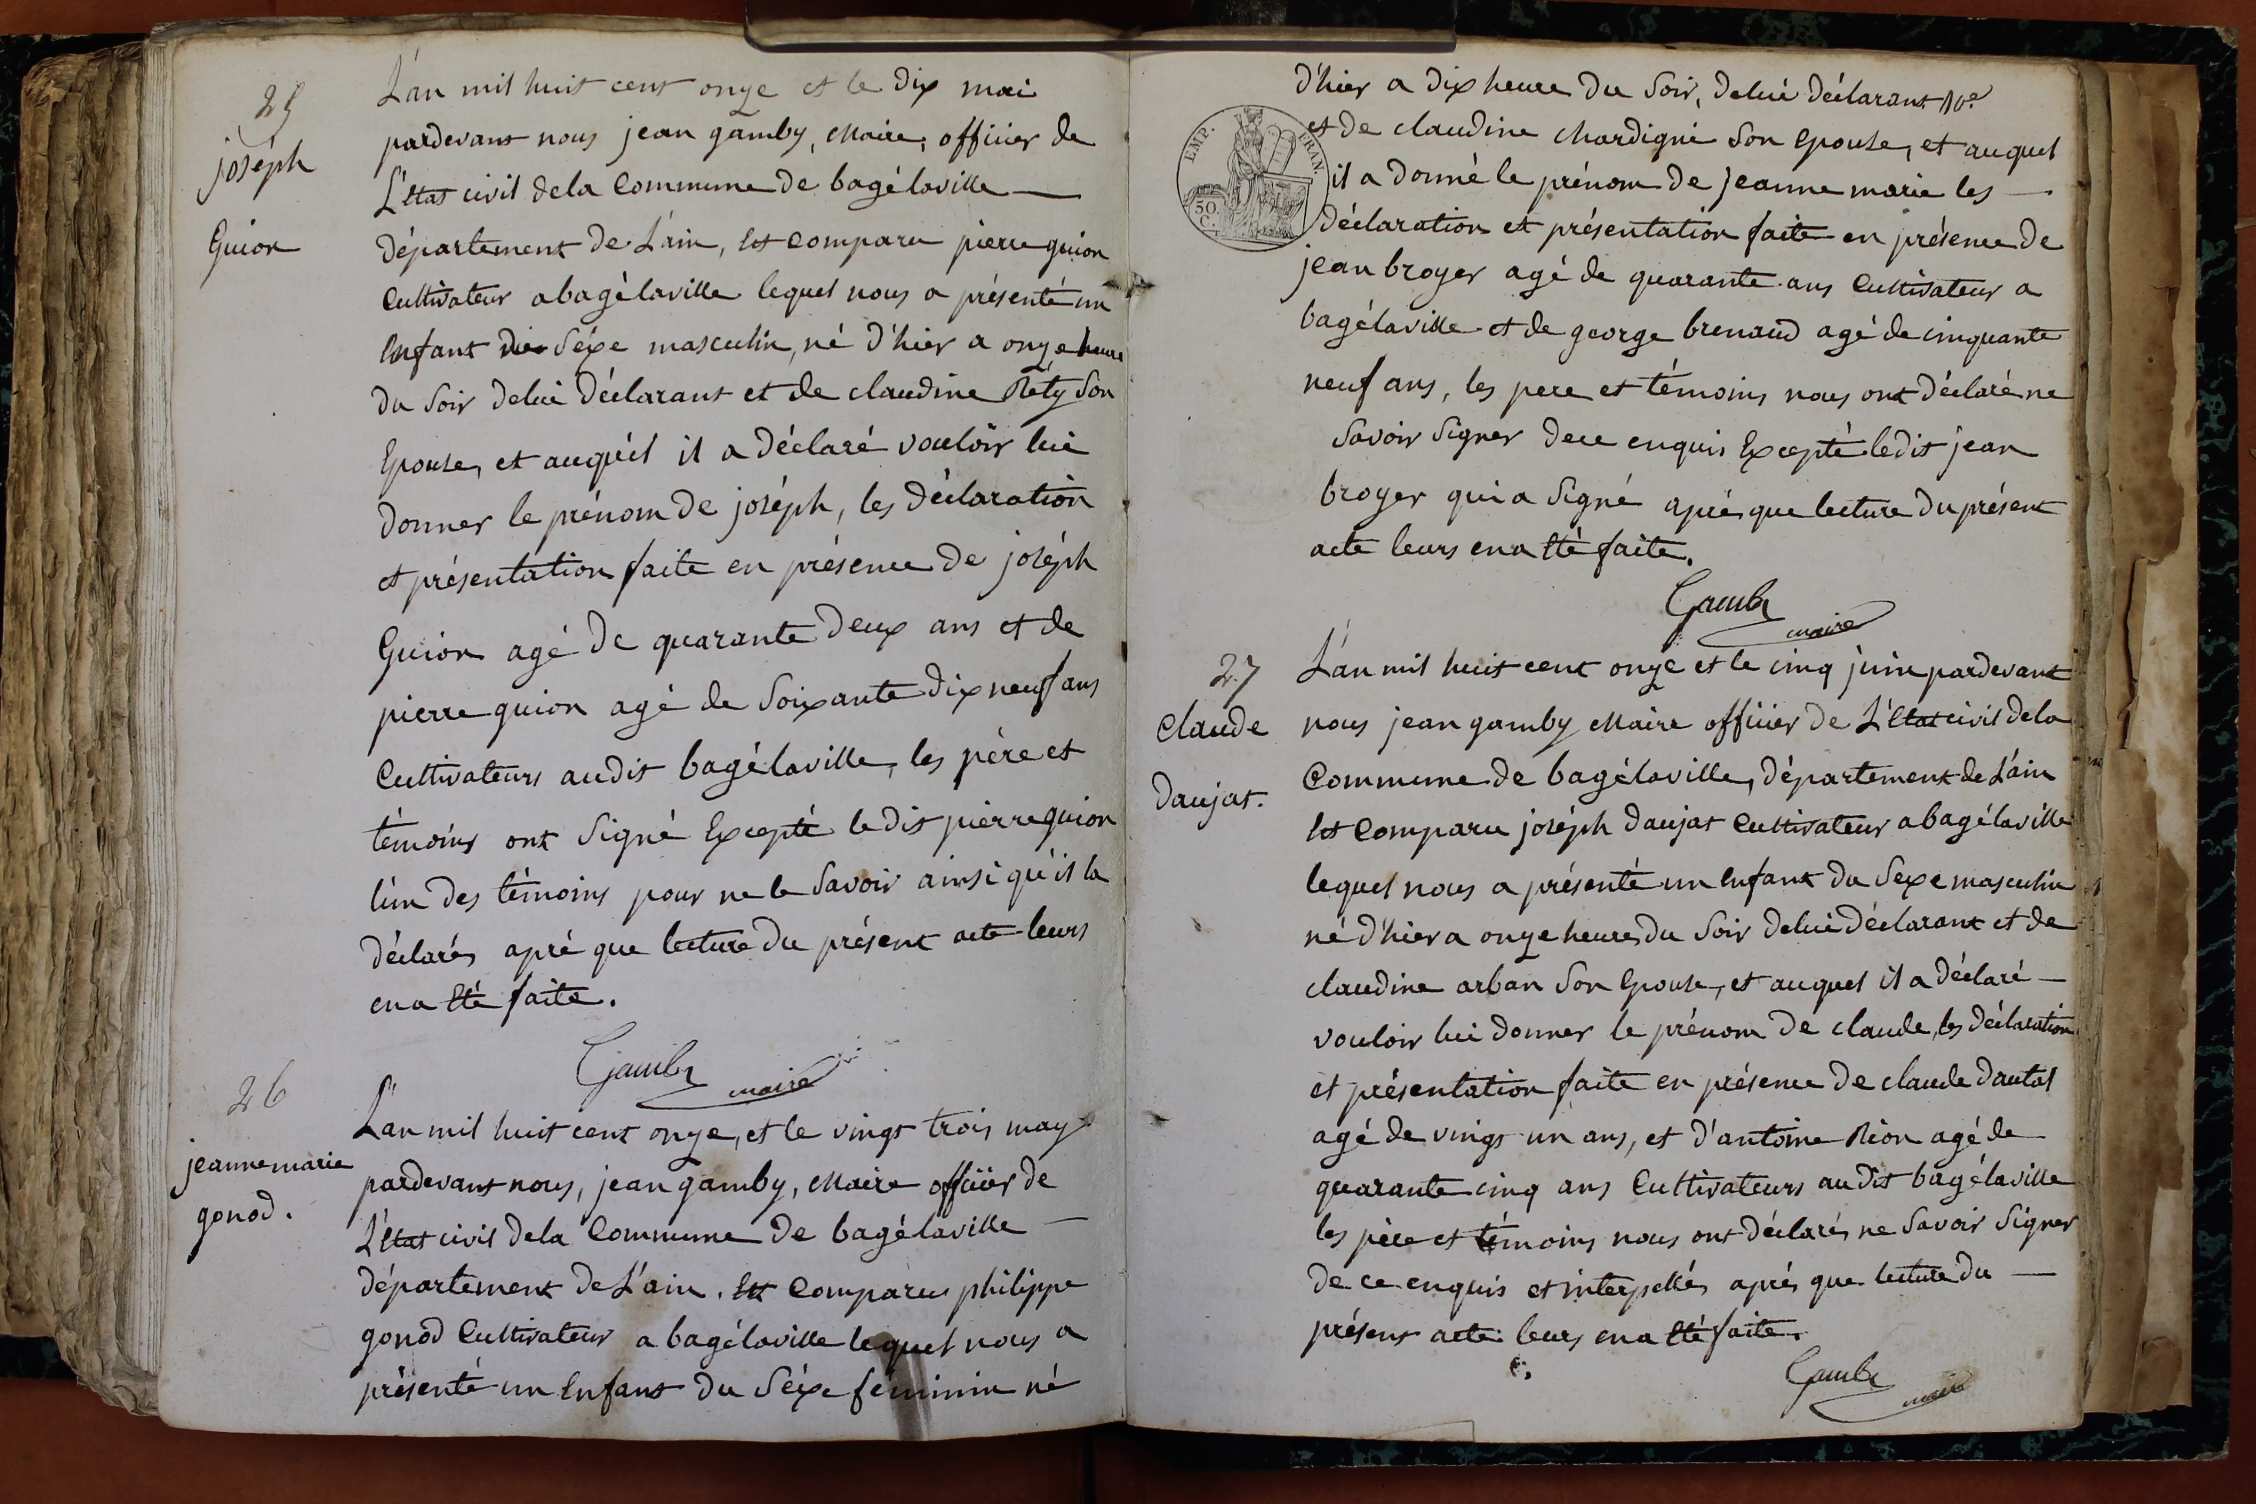 25
joséph
Guion
L'an mil huit cent onze et le dix mai
pardevant nous jean gamby, Maire, officier de
L'état civil dela Commune de bagélaville —
département de L'ain, Est Comparu pierre guion
Cultivateur abagélaville lequel nous a présenté un
Enfant du Séxe masculin, né d'hier a onze heure
du Soir delui déclarant et de claudine Réty Son
Epouse, et auquél il a déclaré vouloir lui
donner le prénom de joséph, les déclaration
et présentation faite en présence de joséph
Guion agé de quarante deux ans et de
pierre guion agé de Soixante dix neuf ans
Cultivateurs audit bagélaville, les père et
témoins ont Signé Excepté ledit pierre guion
l'un des témoins pour ne le Savoir ainsi qu'il la
déclarés apré que lecture du présent acte leurs
en a été faite.
Gamby
maire
26
jeanne marie
gonod.
L'an mil huit cent onze, et le vingt trois may
pardevant nous, jean gamby, Maire officier de
L'état civil dela Commune de bagélaville —
département de L'ain. Est Comparus philippe
gonod Cultivateur a bagélaville lequel nous a
présenté un Enfant du Séxe féminin né
EMP. FRAN.
50 C.
d'hier a dix heure du Soir, delui déclarant
et de claudine Chardigni Son Epouse, et auquel
il a donné le prénom de jeanne marie les —
déclaration et présentation faite en présence de
jean broyer agé de quarante ans Cultivateur a
bagélaville et de george brenaud agé de cinquante
neuf ans, les pere et témoins nous ont déclaré ne
Savoir Signer dece enquis Excepté ledit jean
broyer qui a Signé aprés que lecture du présent
acte leurs en a été faite.
Gamby
maire
27
Claude
daujat.
L'an mil huit cent onze et le cinq juin pardevant
nous jean gamby Maire officier de L'état civil dela
Commune de bagélaville, département de L'ain
Est Comparu joséph daujat Cultivateur abagélaville
lequel nous a présenté un Enfant du Sexe masculin
né d'hier a onze heures du Soir delui déclarant et de
claudine arban Son Epouse, et auquel il a déclaré —
vouloir lui donner le prénom de claude, les déclaration
et présentation faite en présence de claude dautal
agé de vingt un ans, et d'antoine Rion agé de
quarante cinq ans Cultivateurs audit bagélaville
les père et témoins nous ont déclarés ne Savoir Signer
de ce enquis et interpellés aprés que lecture du —
présent acte leurs en a été faite.
Gamby
maire